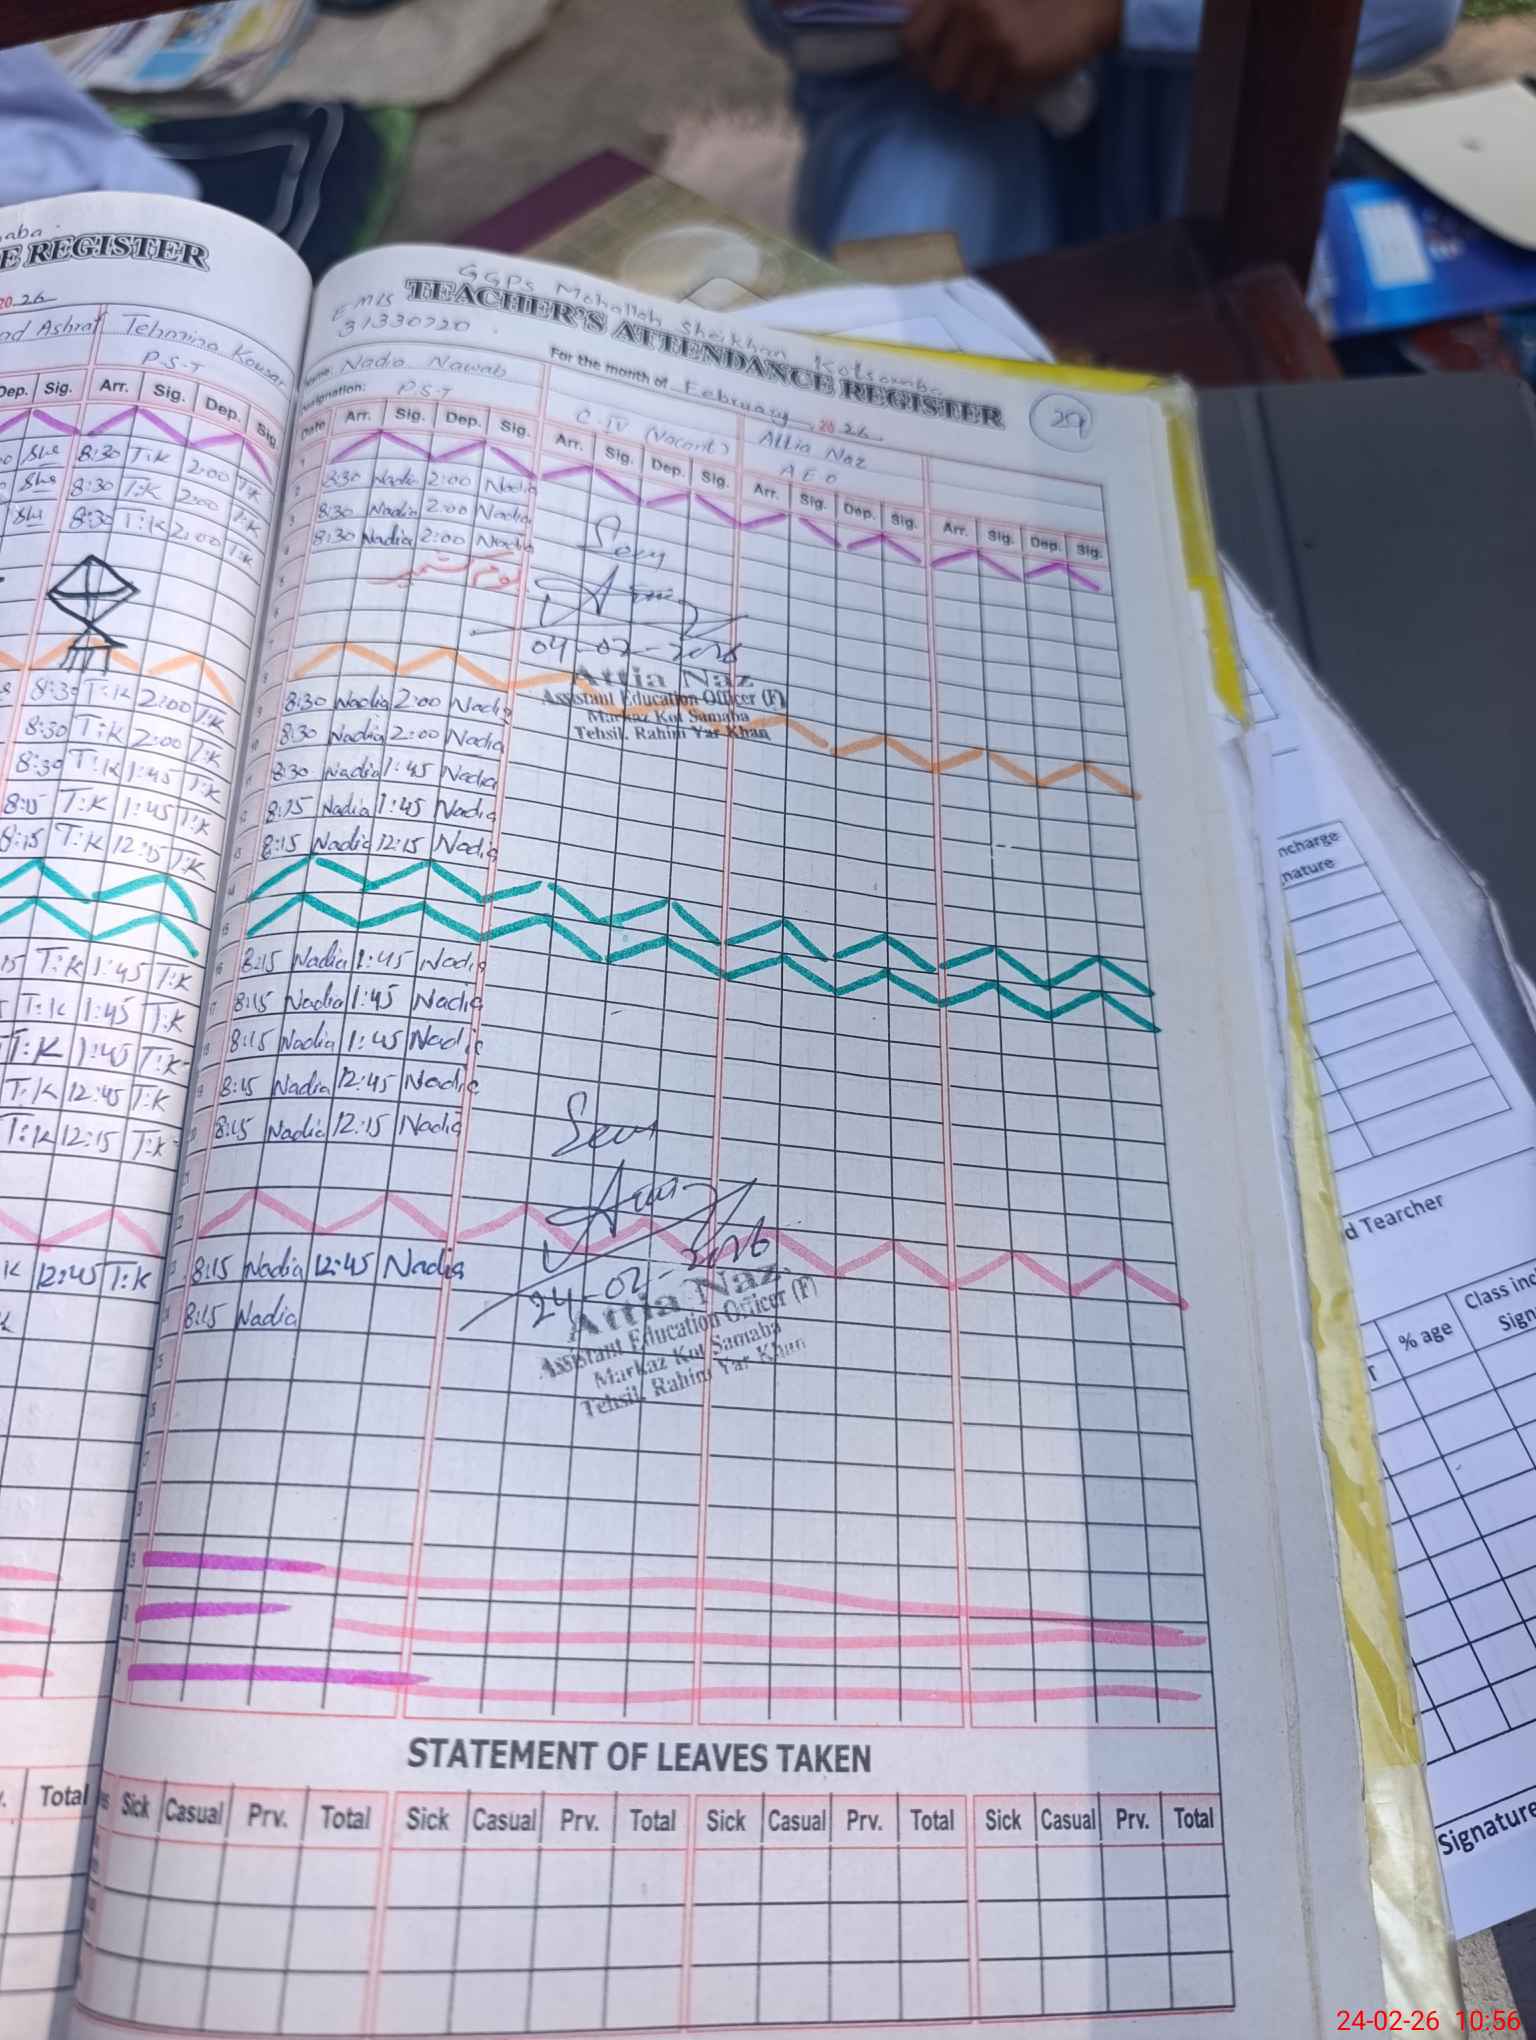 aba
E REGISTER
20 26
nd Ashraf Tehmina Kousar
P.S.T
Dep. Sig. Arr. Sig. Dep. Sig.
She 8:30 T.K 2:00 T.K
She 8:30 T.K 2:00 T.K
She 8:30 T.K 2:00 T.K
8:30 T.K 2:00 T.K
8:30 T.K 2:00 T.K
8:30 T.K 1:45 T.K
8:15 T.K 1:45 T.K
8:15 T.K 12:15 T.K
15 T.K 1:45 T.K
T.K 1:45 T.K
T.K 1:45 T.K
T.K 12:45 T.K
T.K 12:15 T.K
K 12:45 T.K
Total
GGPS Mohallah Sheikhan Kotsamaba
EMIS
31330720
TEACHER'S ATTENDANCE REGISTER
29
For the month of February 20 26
Name: Nadia Nawab C-IV (Vacant) Attia Naz
Designation: P.S.T A E O
Date Arr. Sig. Dep. Sig. Arr. Sig. Dep. Sig. Arr. Sig. Dep. Sig. Arr. Sig. Dep. Sig.
1
2 8:30 Nadia 2:00 Nadia
3 8:30 Nadia 2:00 Nadia
4 8:30 Nadia 2:00 Nadia
Seen
5
6
04-02-2026
7
8
Attia Naz
Assistant Education Officer (F)
Markaz Kot Samaba
Tehsil. Rahim Yar Khan
9 8:30 Nadia 2:00 Nadia
10 8:30 Nadia 2:00 Nadia
11 8:30 Nadia 1:45 Nadia
12 8:15 Nadia 1:45 Nadia
13 8:15 Nadia 12:15 Nadia
14
15
16 8:15 Nadia 1:45 Nadia
17 8:15 Nadia 1:45 Nadia
18 8:15 Nadia 1:45 Nadia
19 8:15 Nadia 12:45 Nadia
20 8:15 Nadia 12:15 Nadia
Seen
23 8:15 Nadia 12:45 Nadia
24 8:15 Nadia
24-02-2026
Attia Naz
Assistant Education Officer (F)
Markaz Kot Samaba
Tehsil. Rahim Yar Khan
STATEMENT OF LEAVES TAKEN
Sick Casual Prv. Total Sick Casual Prv. Total Sick Casual Prv. Total Sick Casual Prv. Total
ncharge
nature
d Tearcher
% age
Class inc
Sign
Signature
24-02-26 10:56